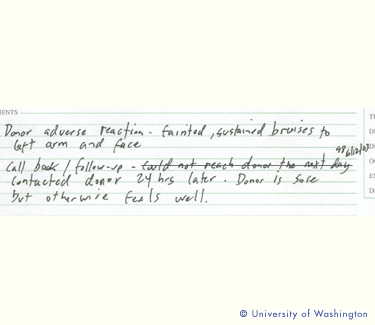 ENTS
Donor adverse reaction - fainted, sustained bruises to
left arm and face
Call back / follow-up - Could not reach donor the next day
contacted donor 24 hrs later. Donor is sore
but otherwise feels well.
© University of Washington